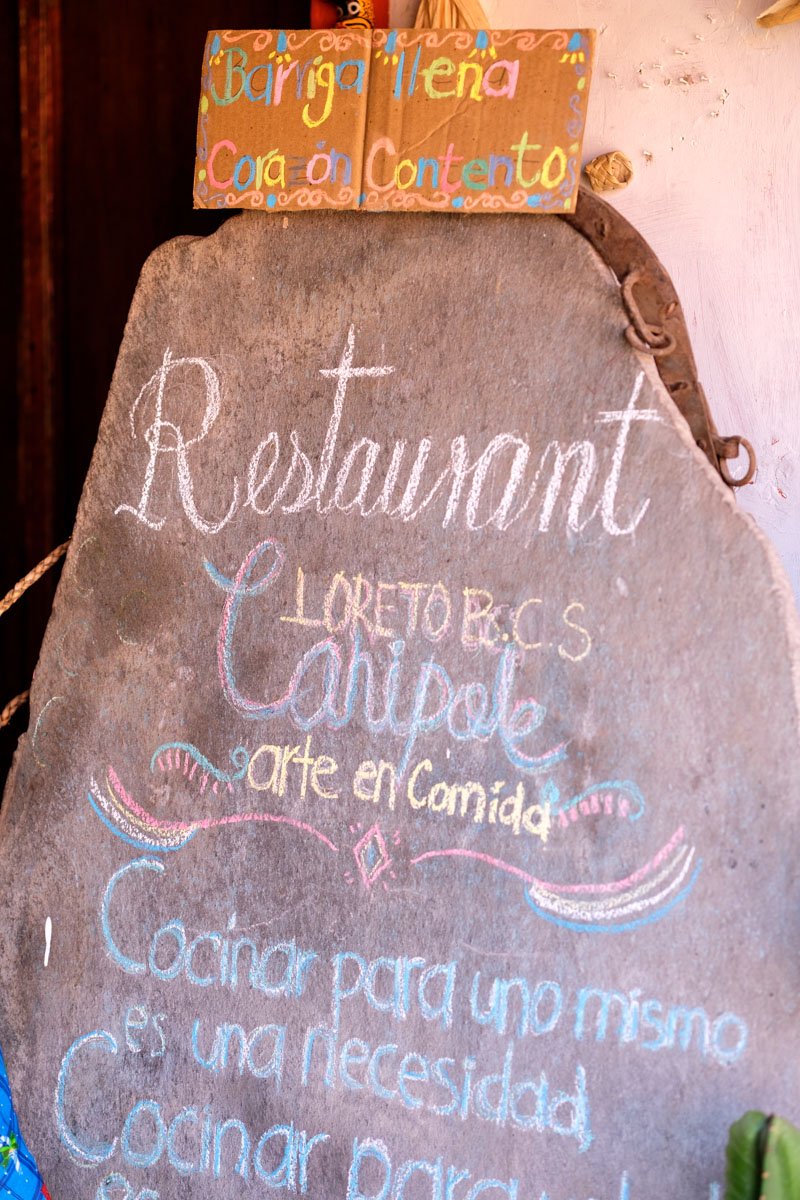 Barriga llena
Corazón Contento
Restaurant
LORETO B.C.S
Canipole
arte en Comida
Cocinar para uno mismo
es una necesidad,
Cocinar para
es